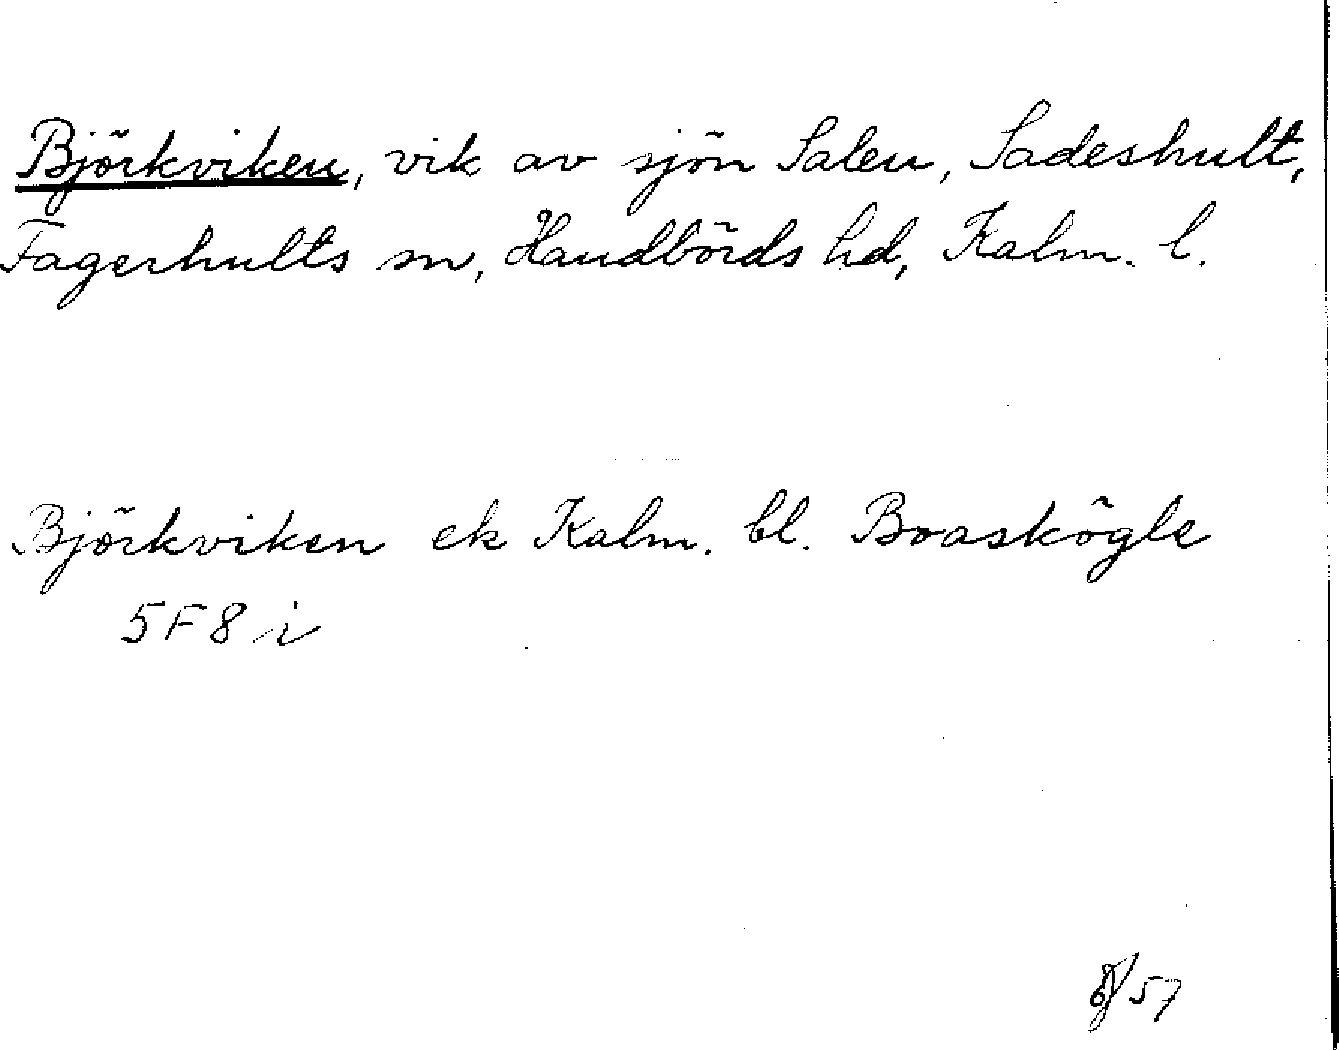 Björkviken, vik av sjön Salen, Sadeshult,
Fagerhults sn, Handbörds hd, Kalm. l.
Björkviken ek Kalm. bl. Boaskögle
5F8i
/57